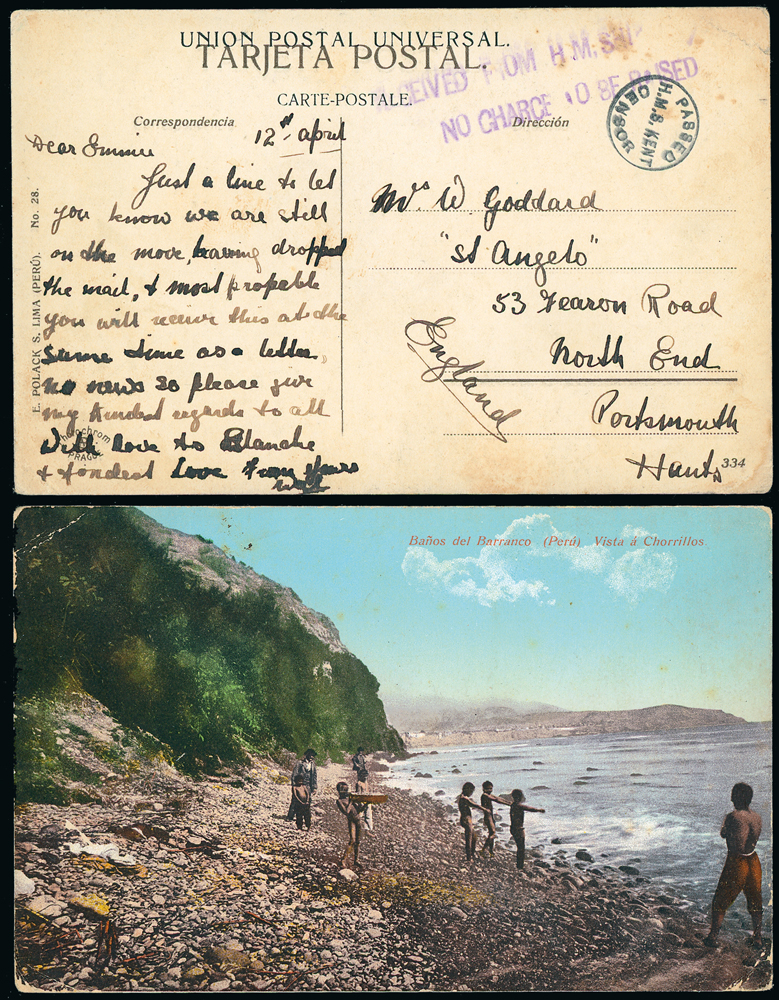 UNION POSTAL UNIVERSAL.
TARJETA POSTAL.
RECEIVED FROM H.M. SHIP
NO CHARGE TO BE RAISED
CARTE-POSTALE.
PASSED
H.M.S. KENT
CENSOR
Correspondencia
Dirección
12th April
Dear Emmie
Just a line to let
you know we are still
on the move, having dropped
the mail, & most propable
you will receive this at the
same time as a letter,
no news so please give
my kindest regards to all
With love to Blanche
& fondest love from yours
Will
Mrs W. Goddard
"St Angelo"
53 Fearon Road
North End
Portsmouth
Hants
England
334
E. POLACK S. LIMA (PERÚ). No. 28.
PRAGUE
Baños del Barranco (Perú) Vista á Chorrillos